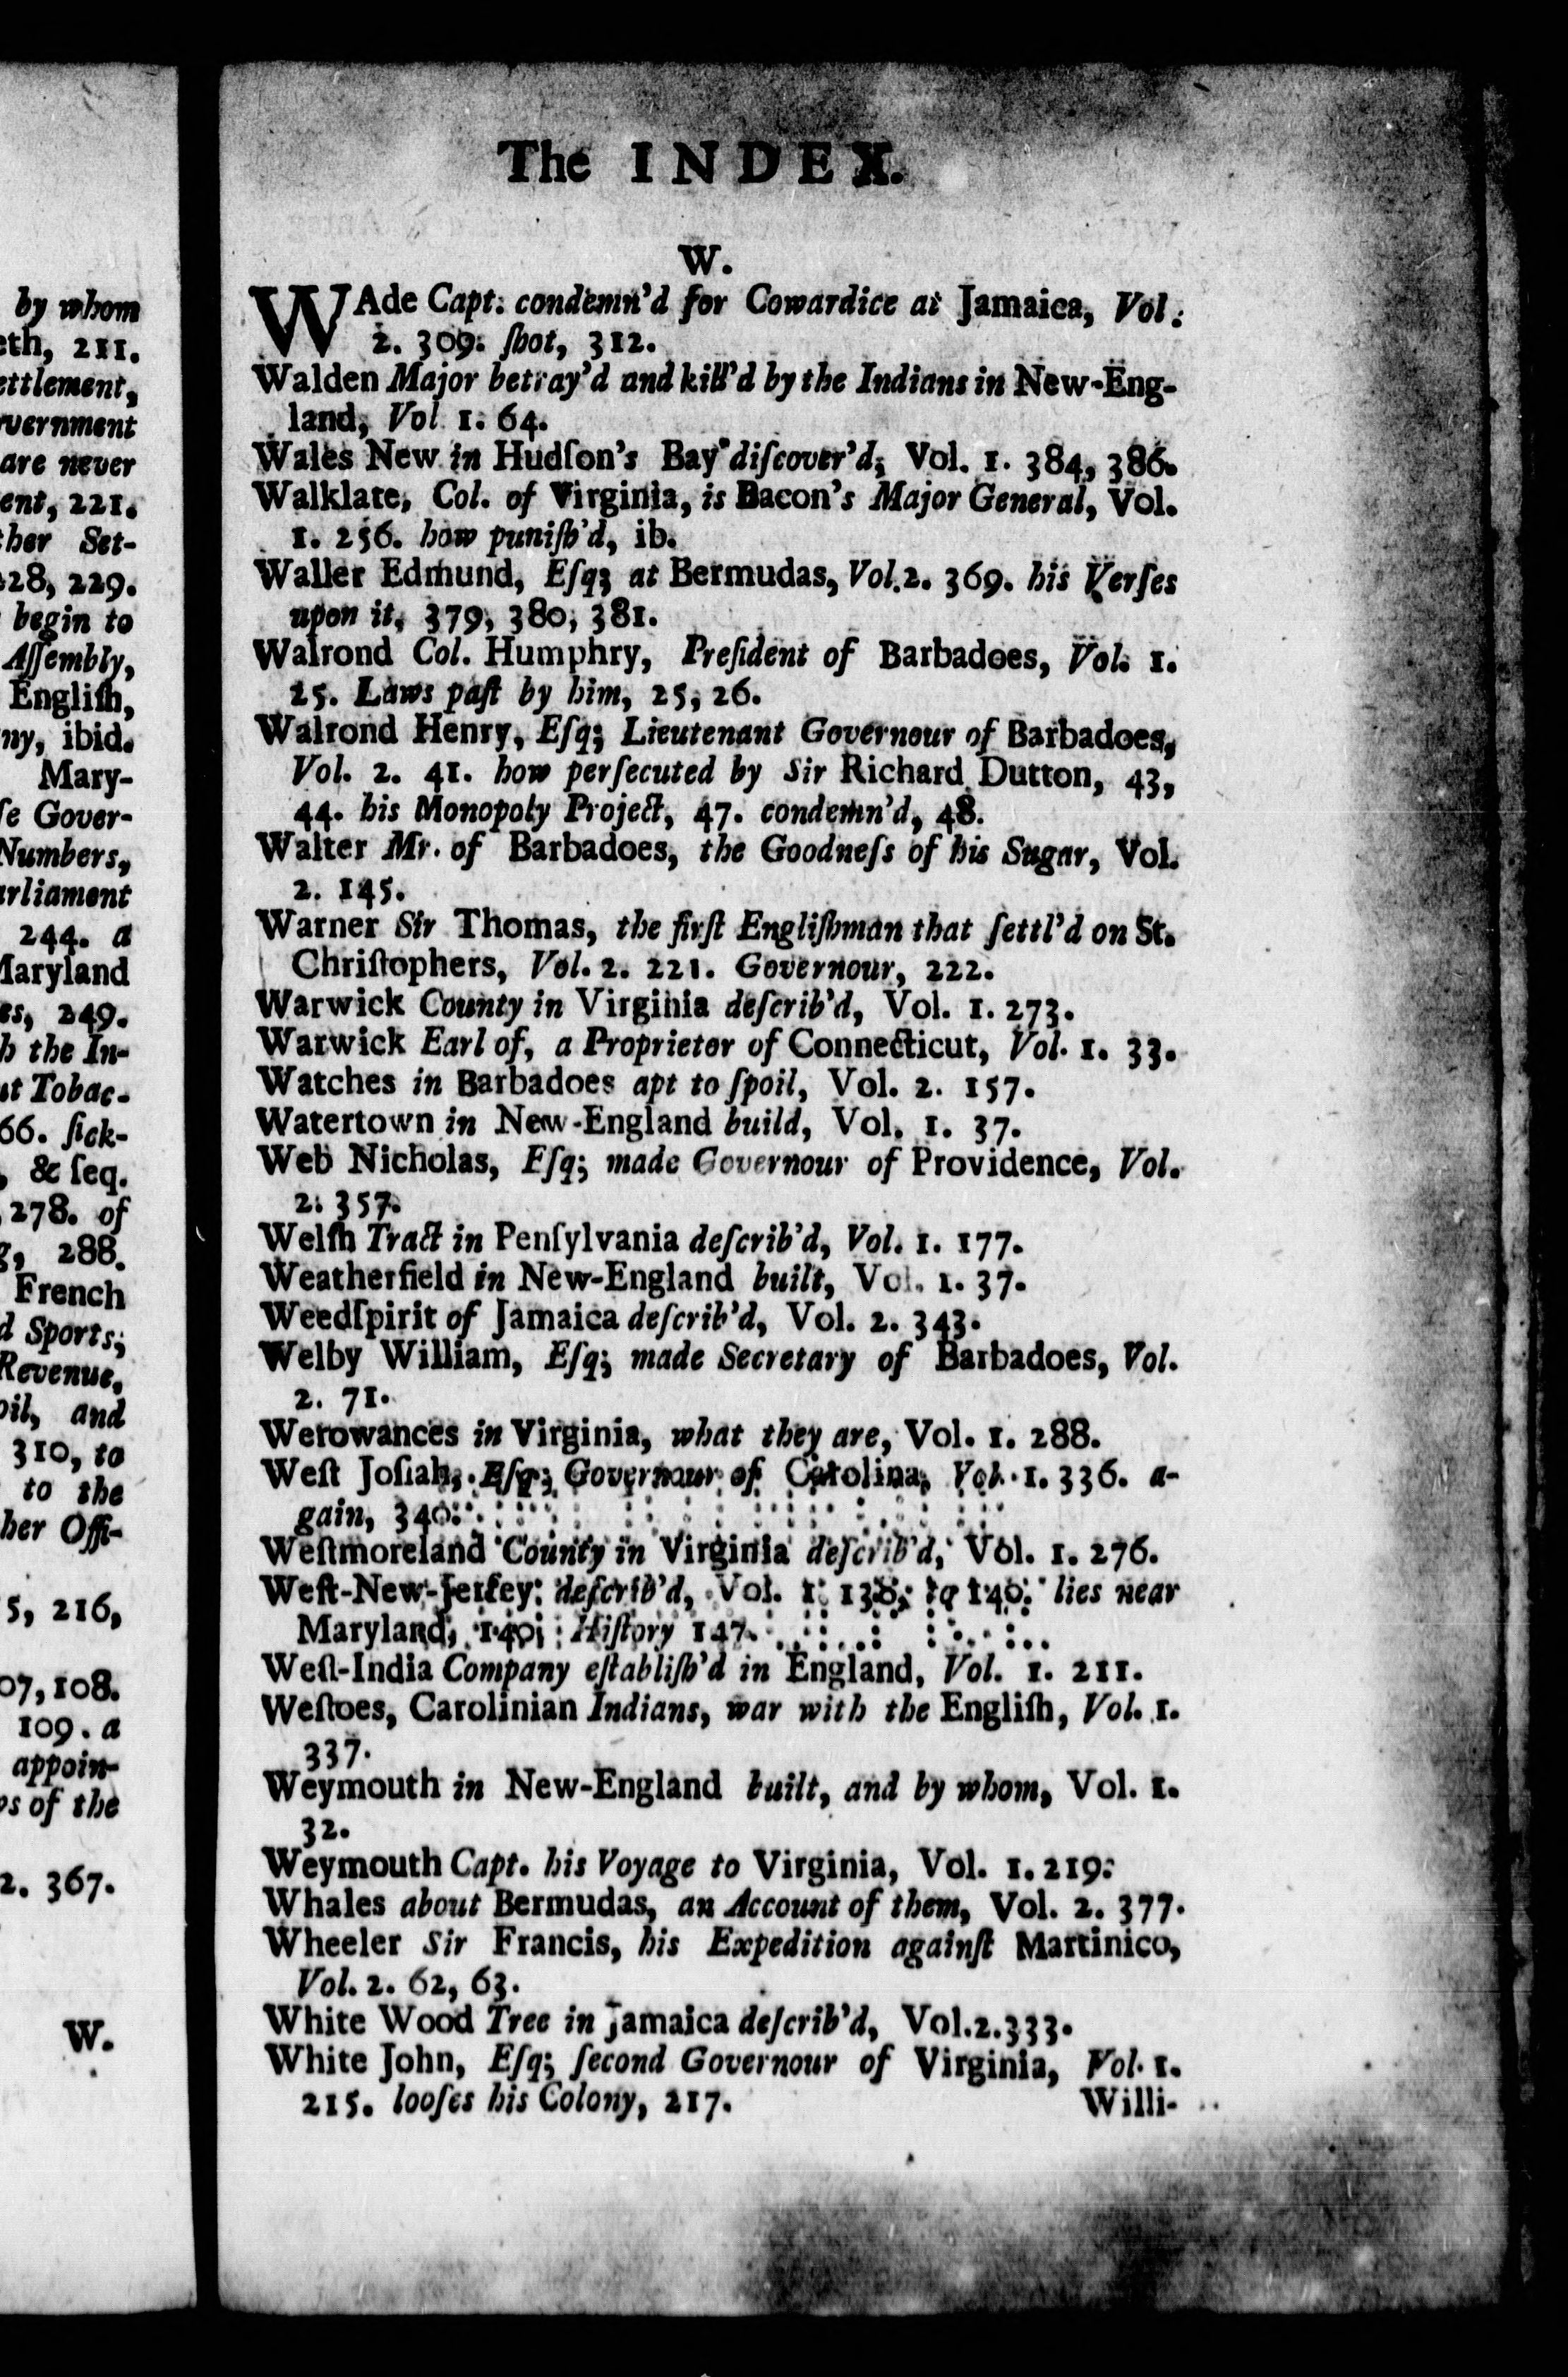 by whom
eth, 211.
ettlement,
vernment
are never
ent, 221.
her Set-
228, 229.
begin to
Aſſembly,
Engliſh,
ny, ibid.
Mary-
ſe Gover-
Numbers,
arliament
244. a
Maryland
es, 249.
h the In-
ut Tobac-
66. ſick-
, & ſeq.
278. of
g, 288.
French
d Sports;
Revenue,
oil, and
310, to
to the
her Offi-
5, 216,
07, 108.
109. a
appoin-
ps of the
2. 367.
W.
The INDEX.
W.
WAde Capt: condemn'd for Cowardice at Jamaica, Vol:
2. 309: ſhot, 312.
Walden Major betray'd and kill'd by the Indians in New-Eng-
land, Vol 1. 64.
Wales New in Hudſon's Bay diſcover'd, Vol. 1. 384, 386.
Walklate, Col. of Virginia, is Bacon's Major General, Vol.
1. 256. how puniſh'd, ib.
Waller Edmund, Eſq; at Bermudas, Vol. 2. 369. his Verſes
upon it, 379, 380, 381.
Walrond Col. Humphry, Preſident of Barbadoes, Vol. 1.
25. Laws paſt by him, 25, 26.
Walrond Henry, Eſq; Lieutenant Governour of Barbadoes,
Vol. 2. 41. how perſecuted by Sir Richard Dutton, 43,
44. his Monopoly Project, 47. condemn'd, 48.
Walter Mr. of Barbadoes, the Goodneſs of his Sugar, Vol.
2. 145.
Warner Sir Thomas, the firſt Engliſhman that ſettl'd on St.
Chriſtophers, Vol. 2. 221. Governour, 222.
Warwick County in Virginia deſcrib'd, Vol. 1. 273.
Warwick Earl of, a Proprietor of Connecticut, Vol. 1. 33.
Watches in Barbadoes apt to ſpoil, Vol. 2. 157.
Watertown in New-England build, Vol. 1. 37.
Web Nicholas, Eſq; made Governour of Providence, Vol.
2. 357.
Welſh Tract in Penſylvania deſcrib'd, Vol. 1. 177.
Weatherfield in New-England built, Vol. 1. 37.
Weedſpirit of Jamaica deſcrib'd, Vol. 2. 343.
Welby William, Eſq; made Secretary of Barbadoes, Vol.
2. 71.
Werowances in Virginia, what they are, Vol. 1. 288.
Weſt Joſiah, Eſq; Governour of Carolina, Vol. 1. 336. a-
gain, 340.
Weſtmoreland County in Virginia deſcrib'd, Vol. 1. 276.
Weſt-New-Jerſey deſcrib'd, Vol. 1. 138, to 140. lies near
Maryland, 140. Hiſtory 147.
Weſt-India Company eſtabliſh'd in England, Vol. 1. 211.
Weſtoes, Carolinian Indians, war with the Engliſh, Vol. 1.
337.
Weymouth in New-England built, and by whom, Vol. 1.
32.
Weymouth Capt. his Voyage to Virginia, Vol. 1. 219.
Whales about Bermudas, an Account of them, Vol. 2. 377.
Wheeler Sir Francis, his Expedition againſt Martinico,
Vol. 2. 62, 63.
White Wood Tree in Jamaica deſcrib'd, Vol. 2. 333.
White John, Eſq; ſecond Governour of Virginia, Vol. 1.
215. looſes his Colony, 217.
Willi-